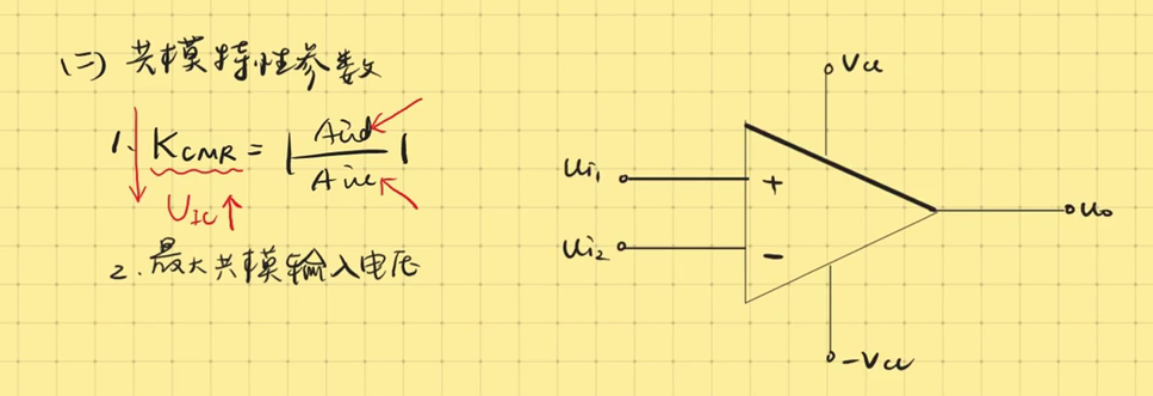 (二) 共模特性参数
1. KCMR = | Aud / Auc |
UIC ↑
2. 最大共模输入电压
Vcc
ui1
+
uo
ui2
-
-Vcc